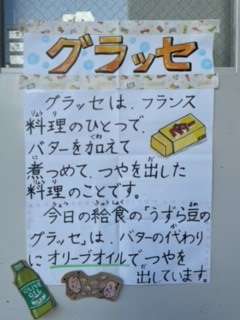 グラッセ
グラッセは、フランス
料理のひとつで、
バターを加えて
煮つめて、つやを出した
料理のことです。
今日の給食の「うずら豆の
グラッセ」は、バターの代わり
にオリーブオイルでつやを
出しています。
OLIVE
OIL